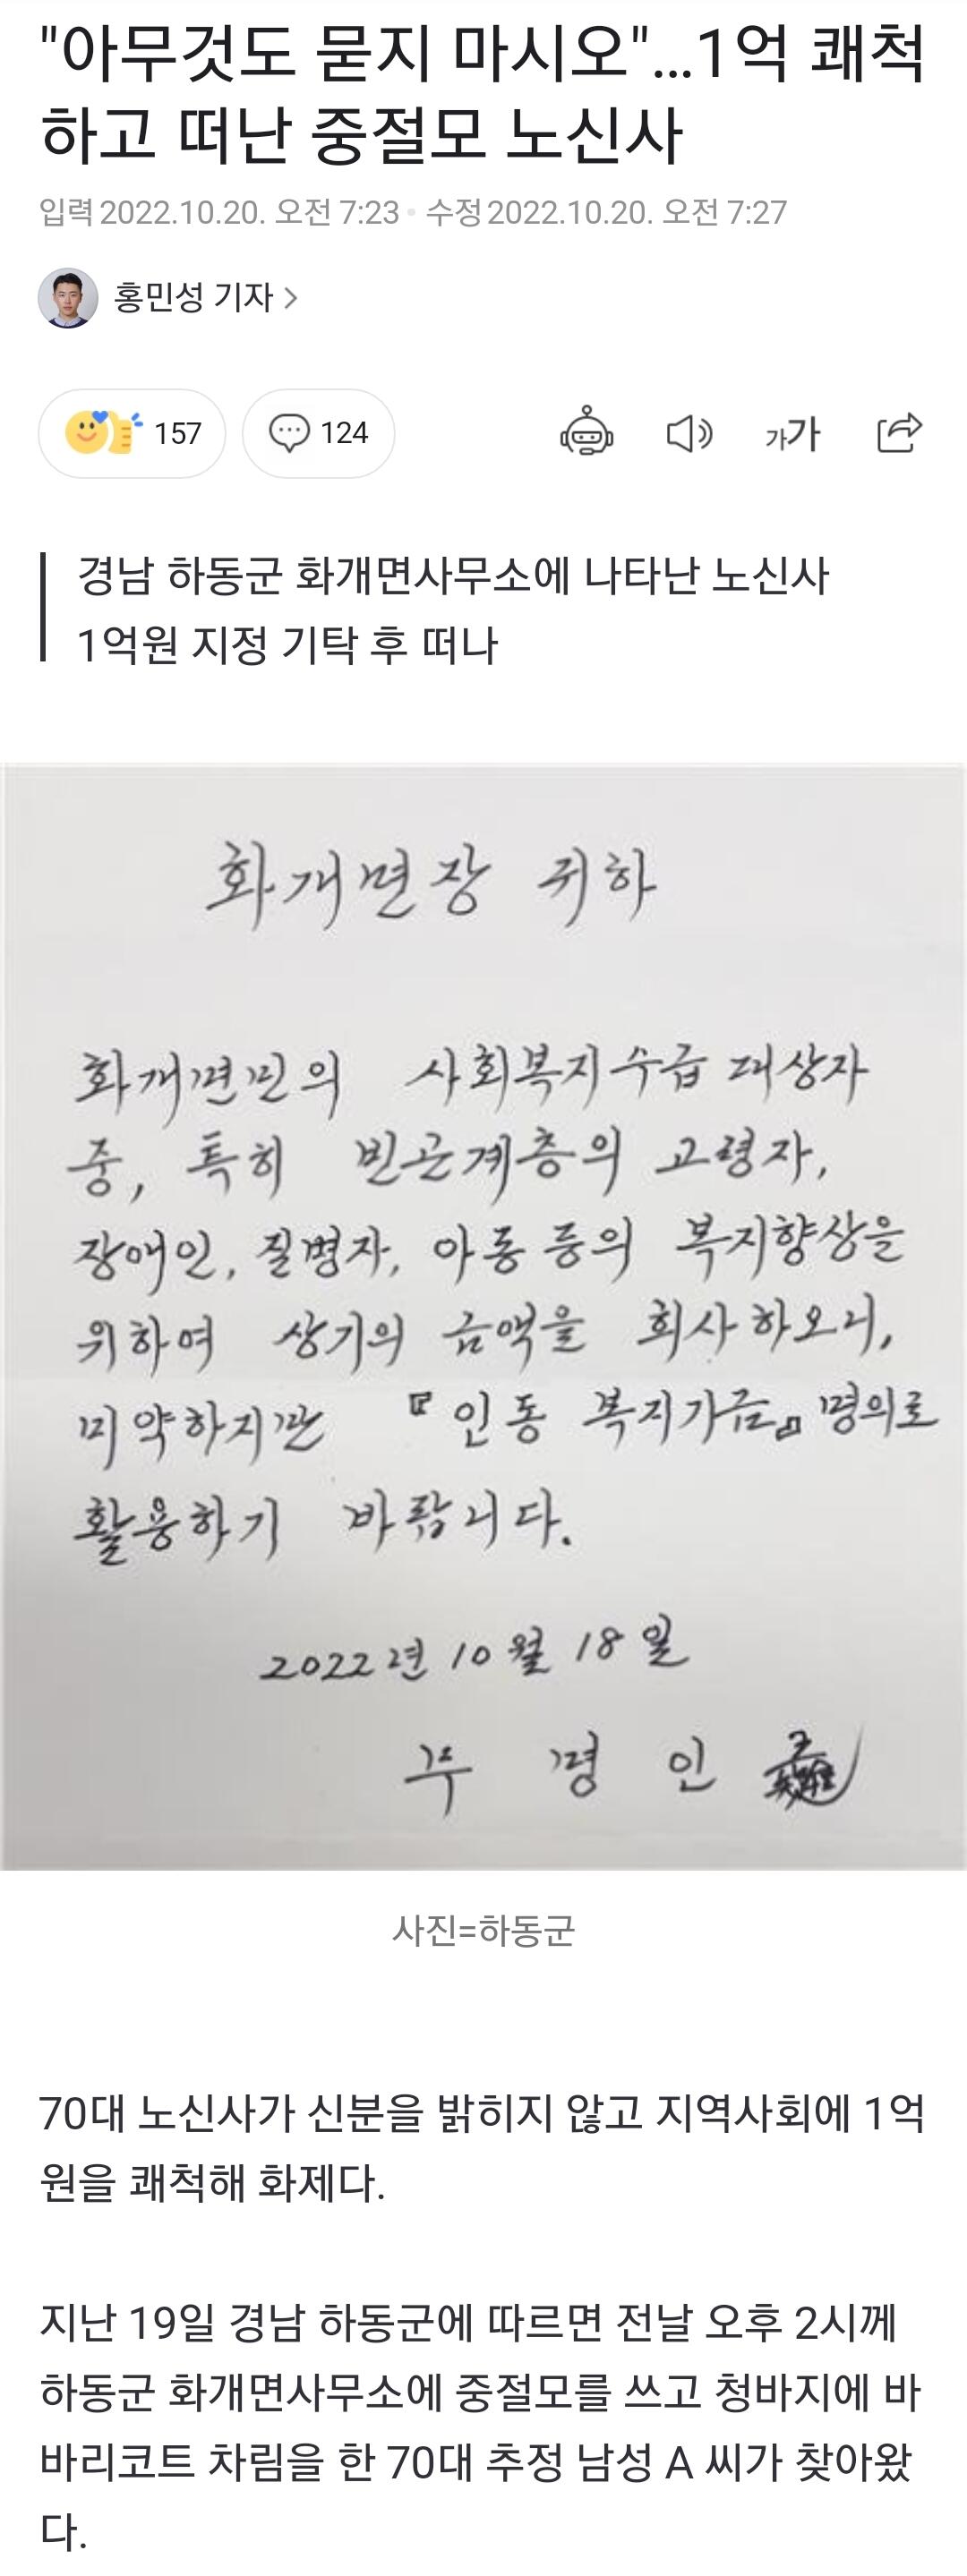 "아무것도 묻지 마시오"…1억 쾌척
하고 떠난 중절모 노신사
입력 2022.10.20. 오전 7:23 · 수정 2022.10.20. 오전 7:27
홍민성 기자 >
157 124 가가
경남 하동군 화개면사무소에 나타난 노신사
1억원 지정 기탁 후 떠나
화개면장 귀하
화개면민의 사회복지수급 대상자
중, 특히 빈곤계층의 고령자,
장애인, 질병자, 아동 등의 복지향상을
위하여 상기의 금액을 희사하오니,
미약하지만 『인동 복지기금』 명의로
활용하기 바랍니다.
2022년 10월 18일
무 명 인
사진=하동군
70대 노신사가 신분을 밝히지 않고 지역사회에 1억
원을 쾌척해 화제다.
지난 19일 경남 하동군에 따르면 전날 오후 2시께
하동군 화개면사무소에 중절모를 쓰고 청바지에 바
바리코트 차림을 한 70대 추정 남성 A 씨가 찾아왔
다.